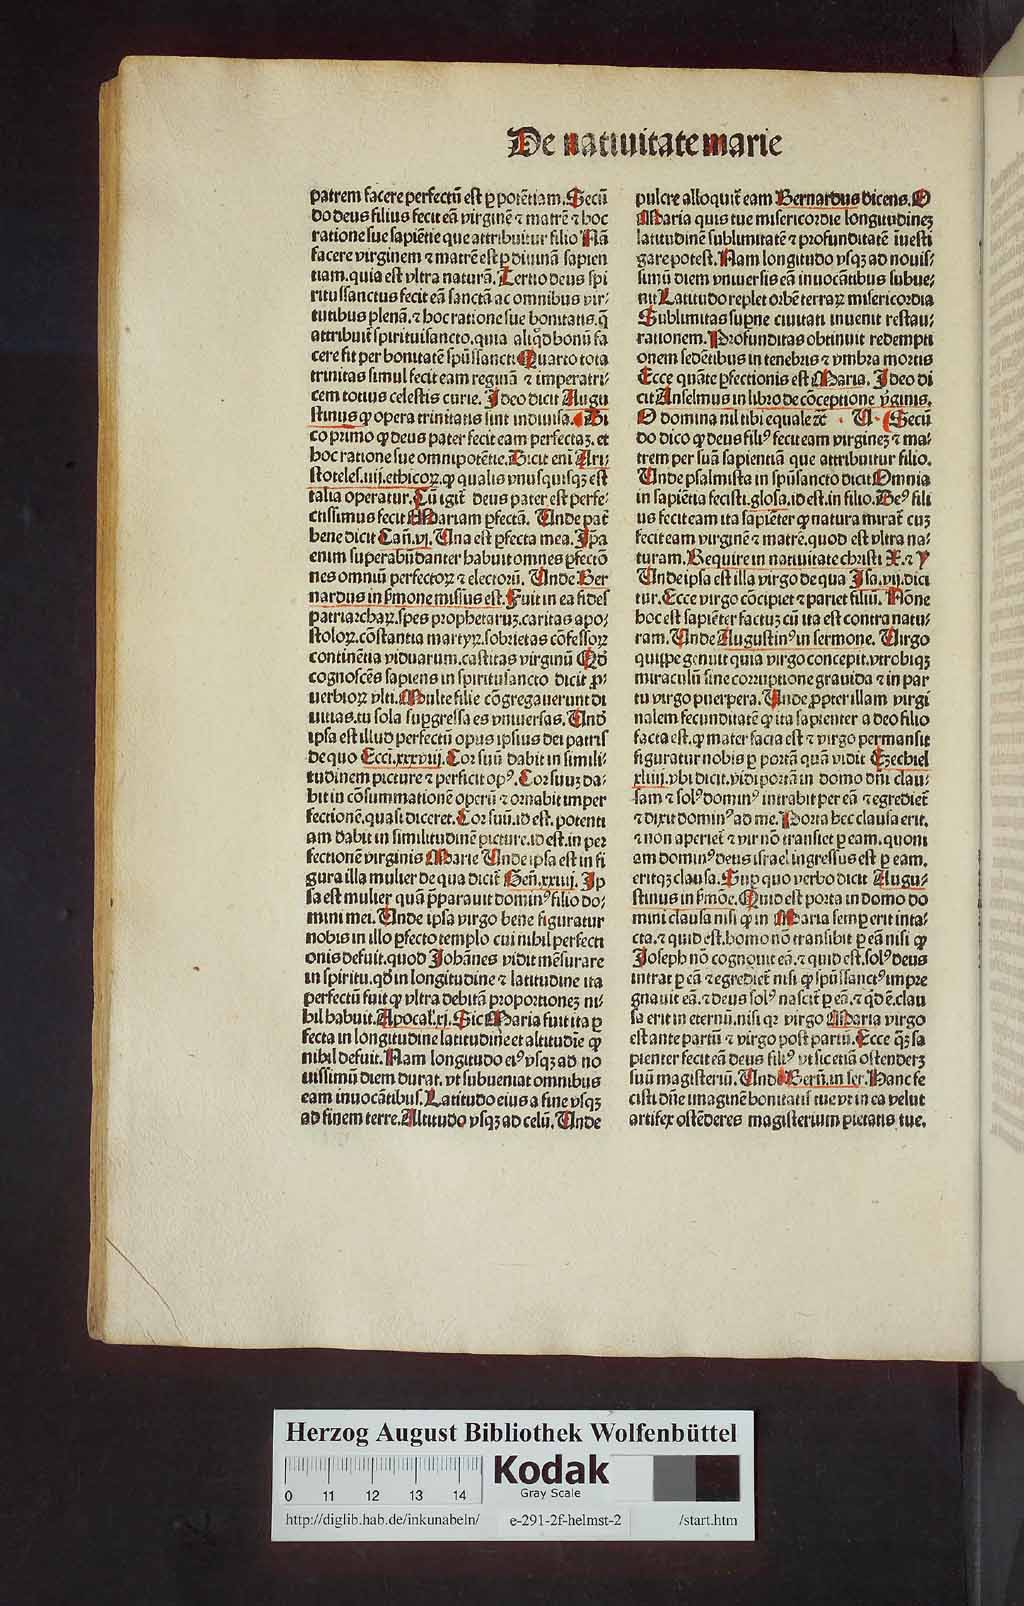 De natiuitate marie
patrem facere perfectū est ꝑ potētiam. Secū
do deus filius fecit eā virginē ⁊ matrē ⁊ hoc
ratione sue sapiētie que attribuitur filio Nā
facere virginem ⁊ matrē est ꝑ diuinā sapien
tiam. quia est vltra naturā. Tertio deus spi
ritussanctus fecit eā sanctā ac omnibus vir⸗
tutibus plenā. ⁊ hoc ratione sue bonitatis. q̄
attribuit̄ spirituisancto. quia aliqd̓ bonū fa
cere fit per bonitatē spūssancti Quarto tota
trinitas simul fecit eam reginā ⁊ imperatri⸗
cem totius celestis curie. Ideo dicit Augu
stinus ꝙ opera trinitatis sint indiuisa. Di
co primo ꝙ deus pater fecit eam perfectaꝫ. et
hoc ratione sue omnipotētie. Dicit eni Ari⸗
stoteles. iiij. ethicoꝝ. ꝙ qualis vnusquisqꝫ est
talia operatur. Cū igit̄ deus pater est perfe⸗
ctissimus fecit Mariam ꝑfectā. Unde pat̄
bene dicit Cañ. vj. Una est ꝑfecta mea. Ip̄a
enim superabūdanter habuit omnes ꝑfectō
nes omniū perfectoꝝ ⁊ electorū. Unde Ber
nardus in ẜmone missus est. Fuit in ea fides
patriarchaꝝ. spes prophetaruꝫ. caritas apo⸗
stoloꝝ. cōstantia martyꝝ. sobrietas cōfessoꝝ
continētia viduarum. castitas virginū Qd̓
cognoscēs sapiens in spiritusancto dicit ꝓ⸗
uerbioꝝ vlti. Multe filie cōgregauerunt di
uitias. tu sola supgressa es vniuersas. Und̓
ipsa est illud perfectū opus ipsius dei patris
de quo Ecci. xxxviij. Cor suū dabit in simili⸗
tudinem picture ⁊ perficit opꝰ. Cor suuꝫ da⸗
bit in cōsummationē operū ⁊ ornabit imper
fectionē. quasi diceret. Cor suū. id est. potenti
am dabit in similitudinē picture. id est. in per
fectionē virginis Marie Unde ipsa est in fi
gura illa mulier de qua dicit̄ Geñ. xxiiij. Ip
sa est mulier quā p̄parauit dominꝰ filio do⸗
mini mei. Unde ipsa virgo bene figuratur
nobis in illo ꝑfecto templo cui nihil perfecti
onis defuit. quod Johānes vidit mēsurare
in spiritu. qd̓ in longitudine ⁊ latitudine ita
perfectū fuit ꝙ vltra debitā proportioneꝫ ni⸗
hil habuit. Apocal. xj. Sic Maria fuit ita ꝑ
fecta in longitudine latitudine et altitudie ꝙ
nihil defuit. Nam longitudo eiꝰ vsqꝫ ad no
uissimū diem durat. vt subueniat omnibus
eam inuocātibus. Latitudo eius a fine vsqꝫ
ad finem terre. Altitudo vsqꝫ ad celū. Unde
pulcre alloquit̄ eam Bernardus dicens. O
Maria quis tue misericordie longitudineꝫ
latitudinē sublimitatē ⁊ profunditatē īuesti
gare potest. Nam longitudo vsqꝫ ad nouis⸗
simū diem vniuersis eā inuocātibus subue⸗
nit Latitudo replet orbē terraꝝ misericordia
Sublimitas supne ciuitati inuenit restau⸗
rationem. Profunditas obtinuit redempti
onem sedētibus in tenebris ⁊ vmbra mortis
Ecce quāte ꝑfectionis est Maria. Ideo di
cit Anselmus in libro de cōceptione v̓ginis.
O domina nil tibi equale ⁊c̄ U Secū
do dico ꝙ deus filiꝰ fecit eam virgineꝫ ⁊ ma⸗
trem per suā sapientiā que attribuitur filio.
Unde psalmista in spūsancto dicit Omnia
in sapiētia fecisti. glosa. id est. in filio. Deꝰ fili
us fecit eam ita sapiēter ꝙ natura mirat̄ cuꝫ
fecit eam virginē ⁊ matrē. quod est vltra na⸗
turam. Require in natiuitate christi X. ⁊ Y
Unde ipsa est illa virgo de qua Isa. vij. dici
tur. Ecce virgo cōcipiet ⁊ pariet filiū. Nōne
hoc est sapiēter factuꝫ cū ita est contra natu⸗
ram. Unde Augustinꝰ in sermone. Virgo
quippe genuit quia virgo concepit. vtrobiqꝫ
miraculū sine corruptione grauida ⁊ in par
tu virgo puerpera. Unde ꝓpter illam virgi
nalem fecunditatē ꝙ ita sapienter a deo filio
facta est. ꝙ mater facta est ⁊ virgo permansit
figuratur nobis ꝑ portā quā vidit Ezechiel
xliiij. vbi dicit. vidi portā in domo dn̄i clau⸗
sam ⁊ solꝰ dominꝰ intrabit per eā ⁊ egrediet̄
⁊ dixit dominꝰ ad me. Porta hec clausa erit.
⁊ non aperiet̄ ⁊ vir nō transiet ꝑ eam. quoni
am dominꝰ deus israel ingressus est ꝑ eam.
eritqꝫ clausa. Sup quo verbo dicit Augu⸗
stinus in ẜmōe. Quid est porta in domo do
mini clausa nisi ꝙ in Maria semꝑ erit inta⸗
cta. ⁊ quid est. homo nō transibit ꝑ eā nisi ꝙ
Joseph nō cognouit eā. ⁊ quid est. solꝰ deus
intrat ꝑ eā ⁊ egrediet̄ nisi ꝙ spūssanctꝰ impre
gnauit eā. ⁊ deus solꝰ nascit̄ ꝑ eā. ⁊ qd̓ ē. clau
sa erit in eternū. nisi qꝛ virgo Maria virgo
est ante partū ⁊ virgo post partū. Ecce qꝫ sa
pienter fecit eā deus filiꝰ vt sic etiā ostenderꝫ
suū magisteriū. Und̓ Berñ. in ser. Hanc fe
cisti dn̄e imaginē bonitatis tue vt in ea velut
artifex ostēderes magisterium pietatis tue.
Herzog August Bibliothek Wolfenbüttel
Kodak
Gray Scale
0 11 12 13 14
http://diglib.hab.de/inkunabeln/ e-291-2f-helmst-2 /start.htm